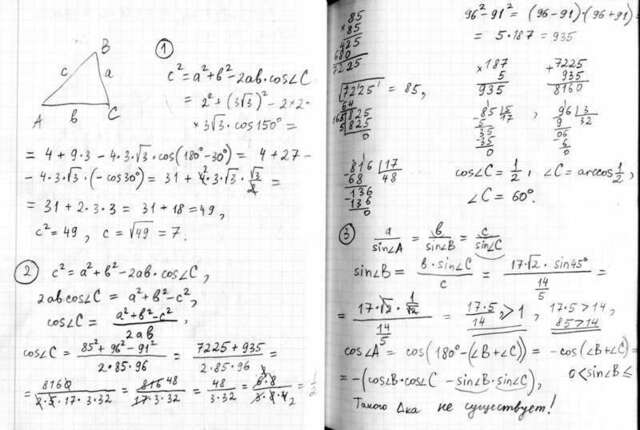 B
c a
A b C
①
c² = a² + b² - 2ab·cos∠C
= 2² + (3√3)² - 2·2·
× 3√3·cos150° =
= 4 + 9·3 - 4·3·√3·cos(180° - 30°) = 4 + 27 -
- 4·3·√3·(-cos30°) = 31 + 4·3·√3·√3/2 =
= 31 + 2·3·3 = 31 + 18 = 49,
c² = 49, c = √49 = 7.
② c² = a² + b² - 2ab·cos∠C,
2ab cos∠C = a² + b² - c²,
cos∠C = (a² + b² - c²)/(2ab).
cos∠C = (85² + 96² - 91²)/(2·85·96) = (7225 + 935)/(2·85·96) =
= 8160/(2·5·17·3·32) = 816 48/(17·3·32) = 48/(3·32) = 6·8/(3·8·4) 2 = 1/2
×85
85
425
680
7225
√7225 = 85,
64
165 825
5 825
0
-816 17
68 48
-136
136
0
96² - 91² = (96 - 91)·(96 + 91)
= 5·187 = 935
×187
5
935
+7225
935
8160
-85 5
5 17
35
35
0
96 3
9 32
06
6
0
cos∠C = 1/2, ∠C = arccos 1/2,
∠C = 60°.
③ a/sin∠A = b/sin∠B = c/sin∠C
sin∠B = b·sin∠C/c = 17√2·sin45°/(14/5) =
= 17·√2·1/√2/(14/5) = 17·5/14 > 1, 17·5 > 14,
85 > 14
cos∠A = cos(180° - (∠B + ∠C)) = -cos(∠B + ∠C) =
= -(cos∠B·cos∠C - sin∠B·sin∠C), 0 < sin∠B ≤
Такого Δка не существует!